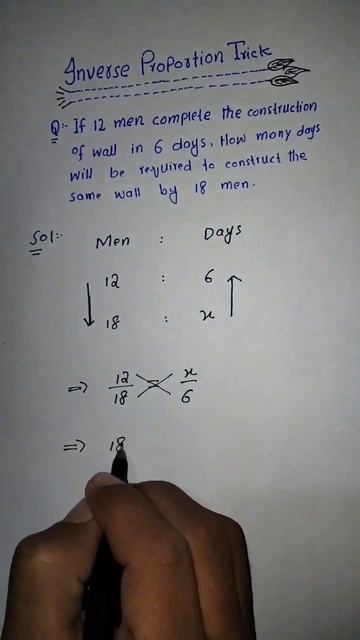 Inverse Proportion Trick
Q:- If 12 men complete the construction
of wall in 6 days, How many days
will be required to construct the
same wall by 18 men.
Sol:- Men : Days
12 : 6
18 : x
=> 12/18 = x/6
=> 18